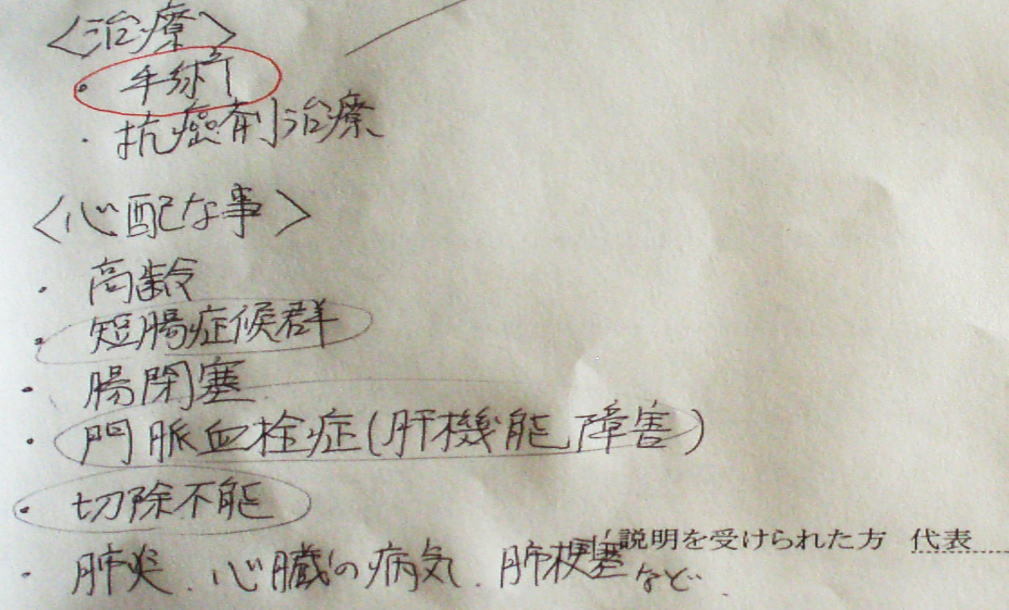 <治療>
・手術
・抗癌剤治療
<心配な事>
・高齢
・短腸症候群
・腸閉塞
・門脈血栓症(肝機能障害)
・切除不能
説明を受けられた方 代表
・肺炎、心臓の病気、肺梗塞など